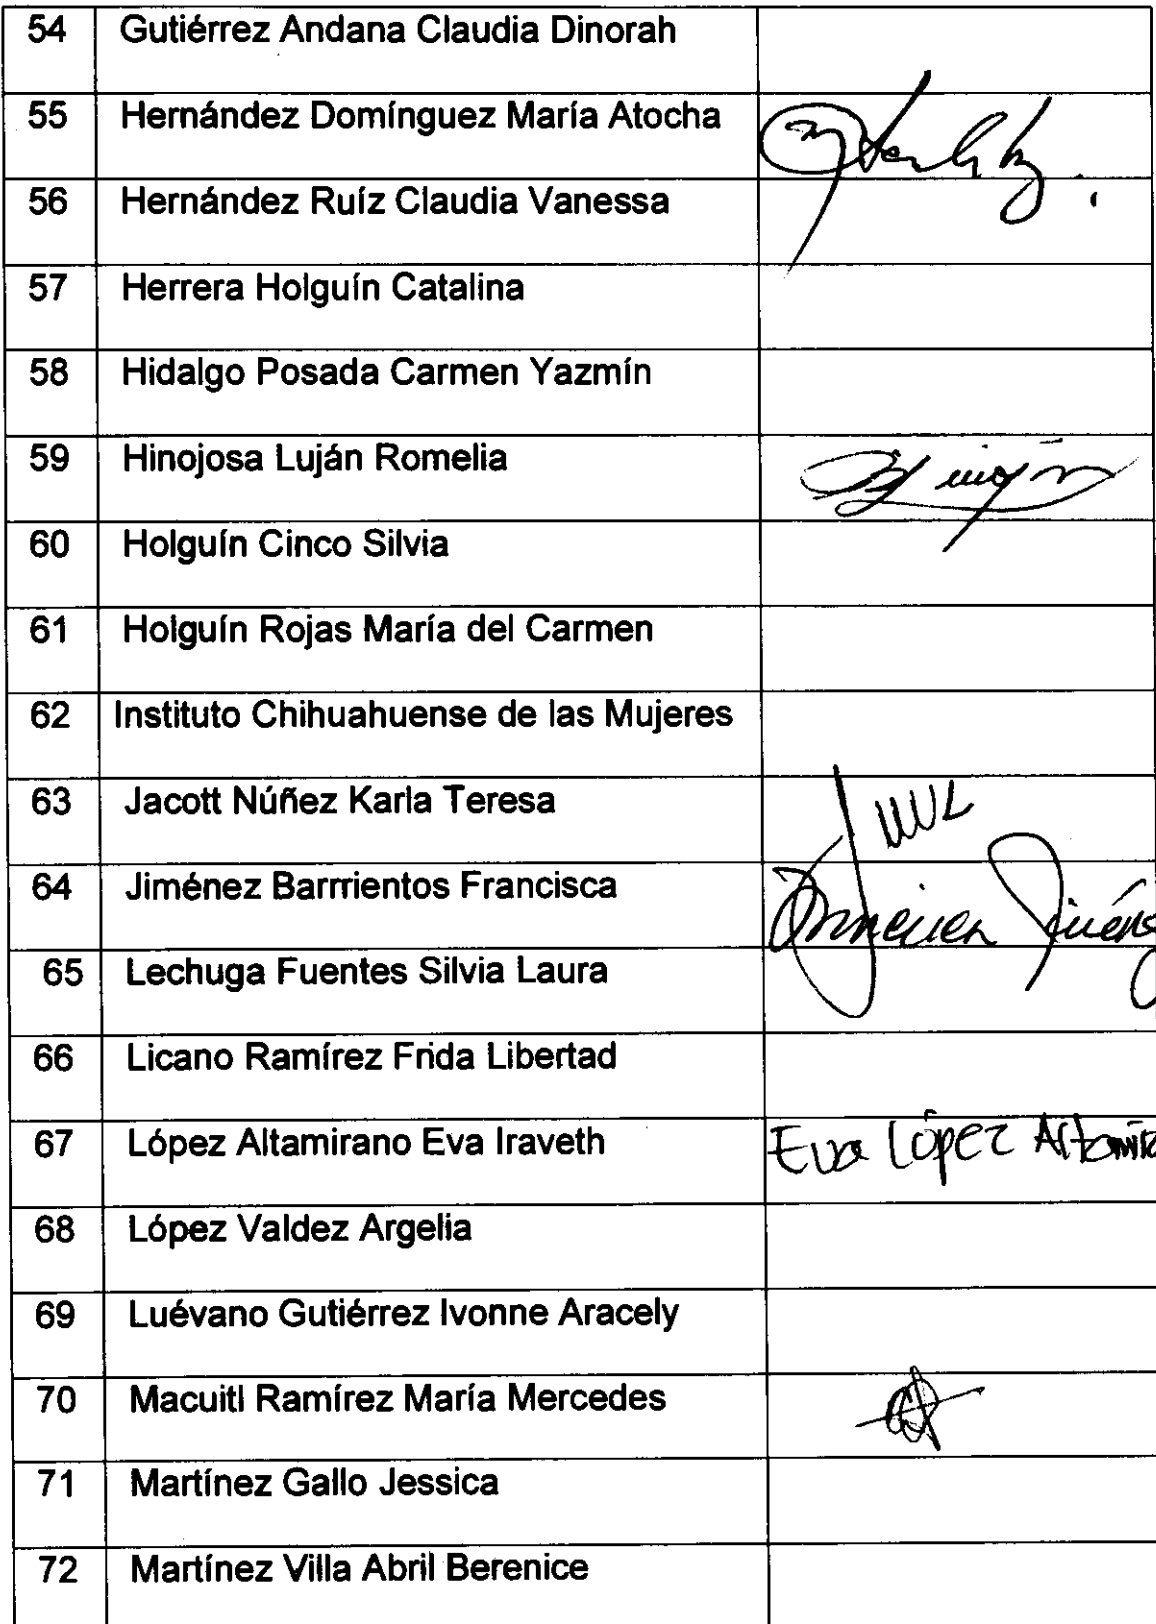 54 Gutiérrez Andana Claudia Dinorah
55 Hernández Domínguez María Atocha
56 Hernández Ruíz Claudia Vanessa
57 Herrera Holguín Catalina
58 Hidalgo Posada Carmen Yazmín
59 Hinojosa Luján Romelia
60 Holguín Cinco Silvia
61 Holguín Rojas María del Carmen
62 Instituto Chihuahuense de las Mujeres
63 Jacott Núñez Karla Teresa
64 Jiménez Barrrientos Francisca
65 Lechuga Fuentes Silvia Laura
66 Licano Ramírez Frida Libertad
67 López Altamirano Eva Iraveth Eva López
68 López Valdez Argelia
69 Luévano Gutiérrez Ivonne Aracely
70 Macuitl Ramírez María Mercedes
71 Martínez Gallo Jessica
72 Martínez Villa Abril Berenice